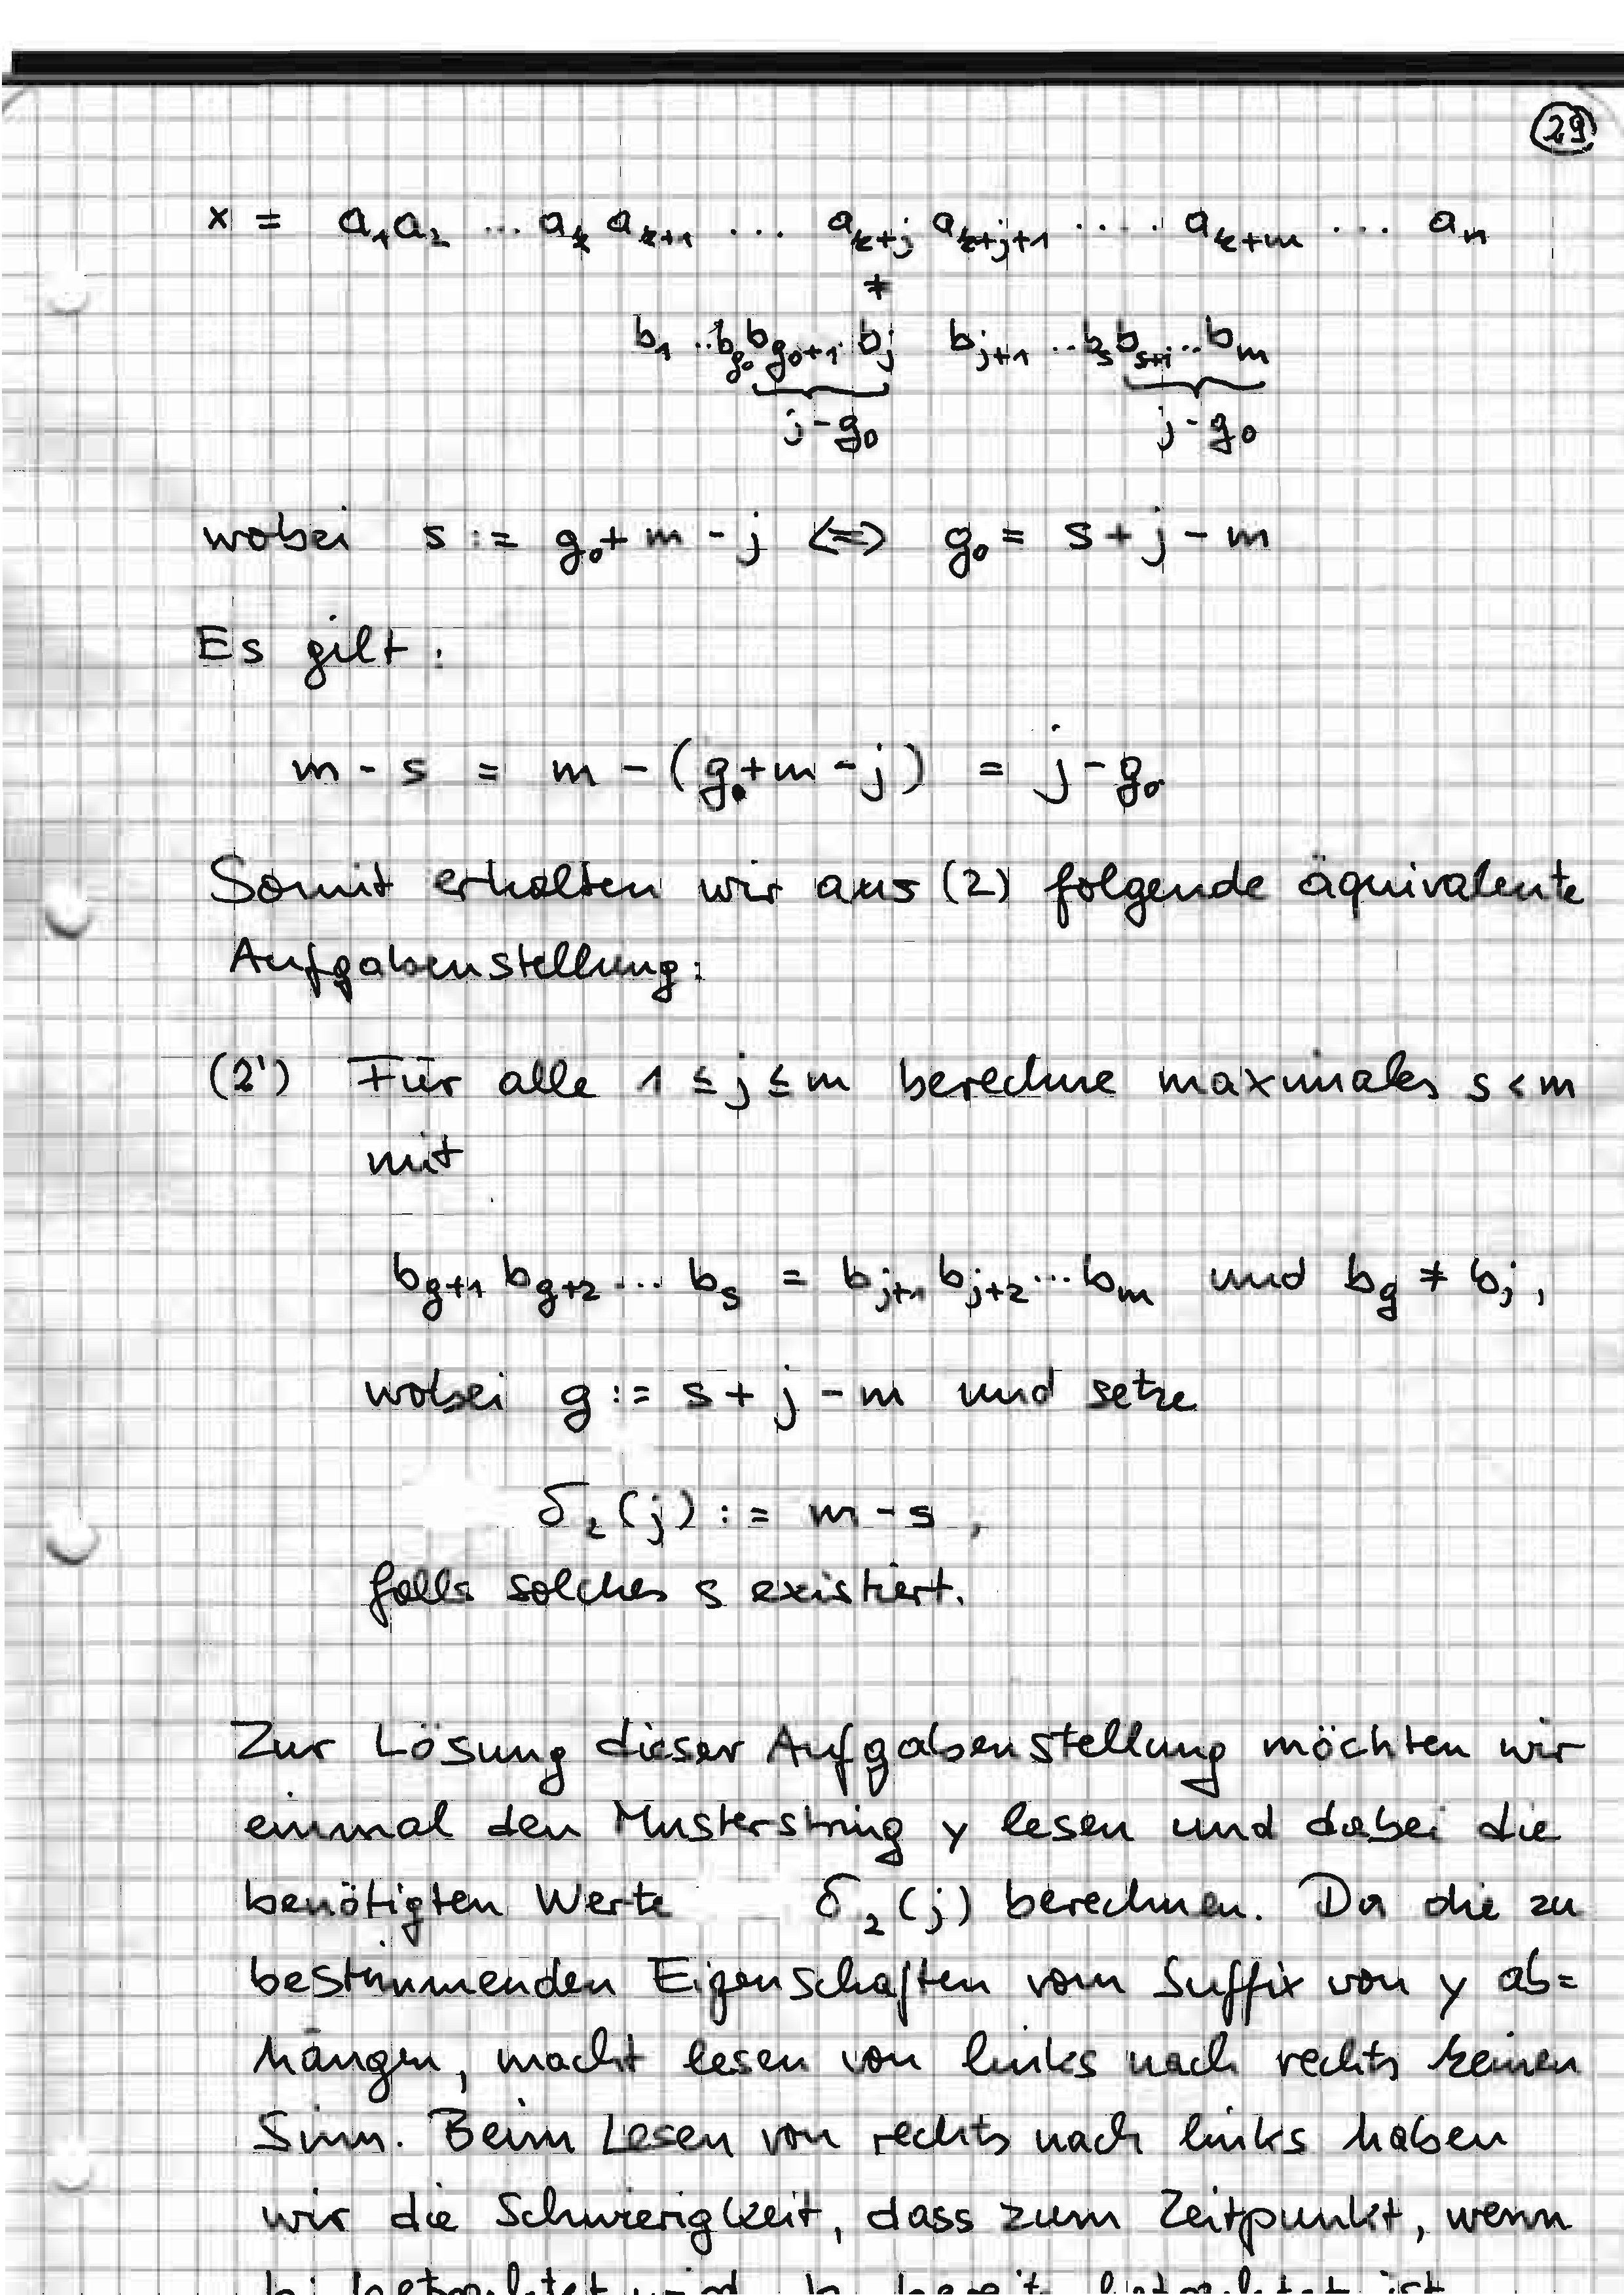 29
x = a₁a₂ ... aₖ aₖ₊₁ ... aₖ₊ⱼ aₖ₊ⱼ₊₁ .... aₖ₊ₘ ... aₙ
≠
b₁ ..b_{g₀} b_{g₀+1}. bⱼ bⱼ₊₁ ..bₛ bₛ₊₁...bₘ
j-g₀ j-g₀
wobei s := g₀+m-j <=> g₀ = s+j-m
Es gilt:
m-s = m-(g₀+m-j) = j-g₀.
Somit erhalten wir aus (2) folgende äquivalente
Aufgabenstellung:
(2') Für alle 1 ≤ j ≤ m berechne maximales s < m
mit
b_{g+1} b_{g+2} ... bₛ = bⱼ₊₁ bⱼ₊₂ ... bₘ und b_g ≠ bⱼ,
wobei g := s+j-m und setze
δ₂(j) := m-s,
falls solches s existiert.
Zur Lösung dieser Aufgabenstellung möchten wir
einmal den Musterstring y lesen und dabei die
benötigten Werte δ₂(j) berechnen. Da die zu
bestimmenden Eigenschaften vom Suffix von y ab=
hängen, macht lesen von links nach rechts keinen
Sinn. Beim Lesen von rechts nach links haben
wir die Schwierigkeit, dass zum Zeitpunkt, wenn